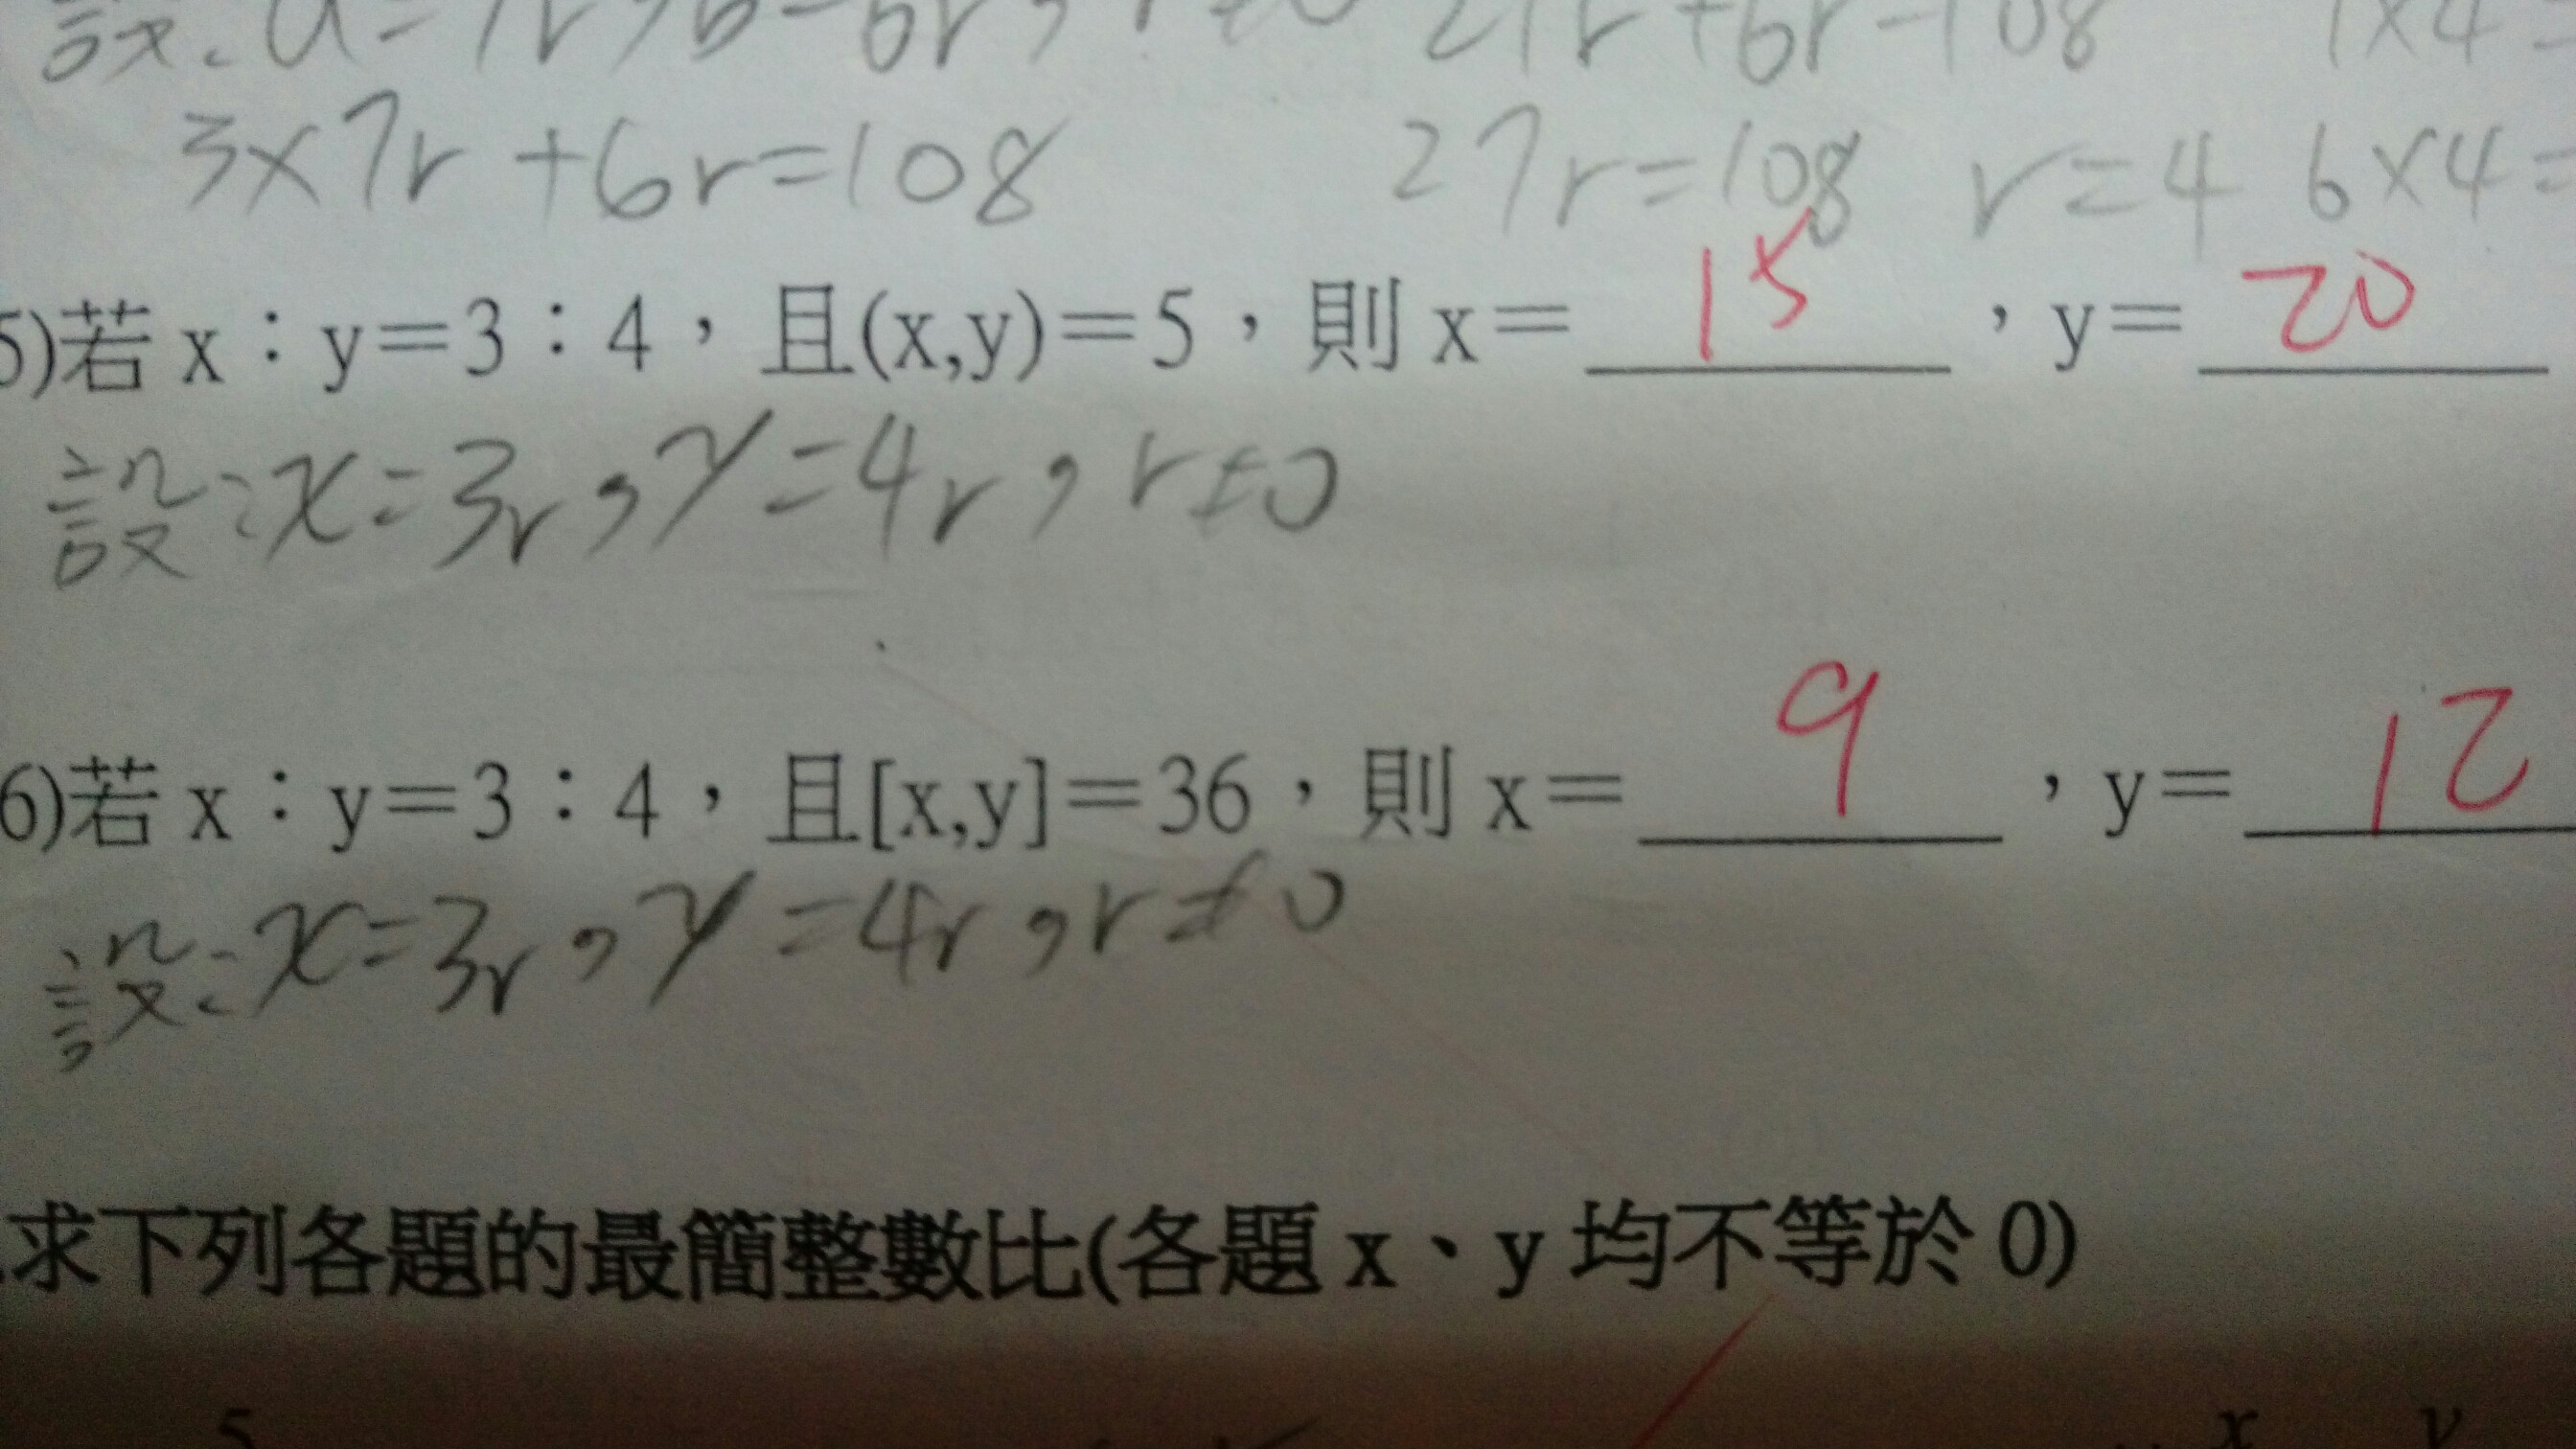 設:a=7r,b=6r,r≠0 21r+6r=108 7×4=
3×7r+6r=108 27r=108 r=4 6×4=
5)若 x:y=3:4,且(x,y)=5,則 x= 15 ,y= 20
設:x=3r,y=4r,r≠0
6)若 x:y=3:4,且[x,y]=36,則 x= 9 ,y= 12
設:x=3r,y=4r,r≠0
求下列各題的最簡整數比(各題 x、y 均不等於 0)
5 x y